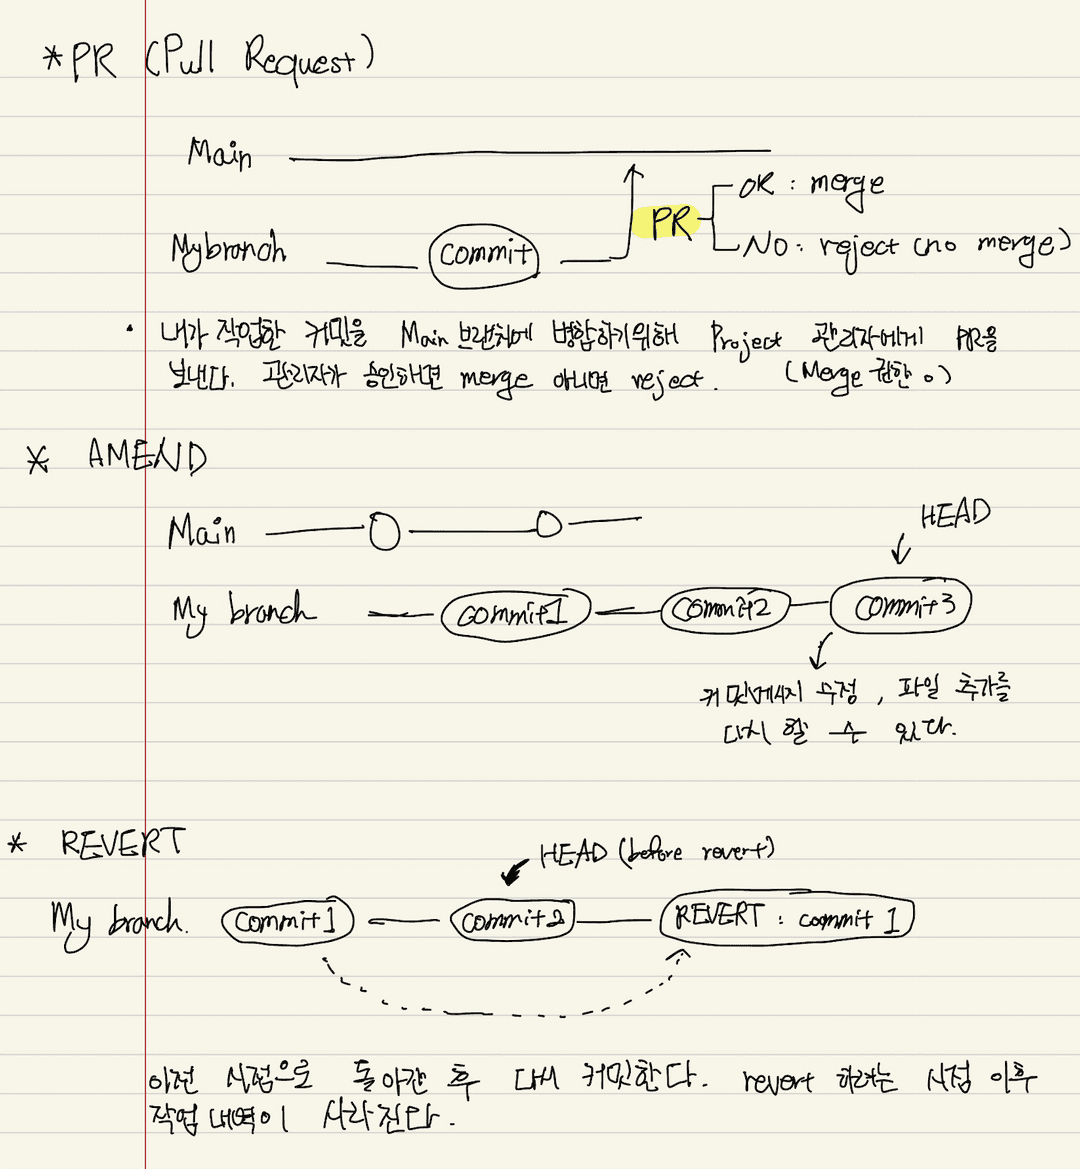 *PR (Pull Request)
Main
OK : merge
PR
Mybranch commit NO : reject (no merge)
• 내가 작업한 커밋을 Main 브랜치에 병합하기위해 Project 관리자에게 PR을
보낸다. 관리자가 승인하면 merge 아니면 reject. (Merge 권한 o)
* AMEND
HEAD
Main
My branch commit1 commit2 commit3
커밋메세지 수정, 파일 추가를
다시 할 수 있다.
* REVERT
HEAD (before revert)
My branch. commit1 commit2 REVERT : commit 1
이전 시점으로 돌아간 후 다시 커밋한다. revert 하려는 시점 이후
작업 내역이 사라진다.